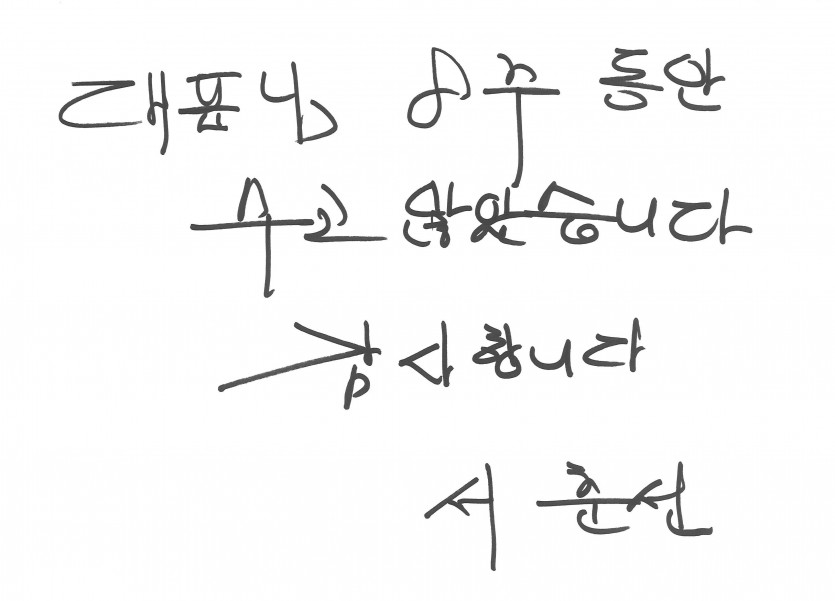 대표님 8주 동안
수고 많았습니다
감사합니다
서 훈선